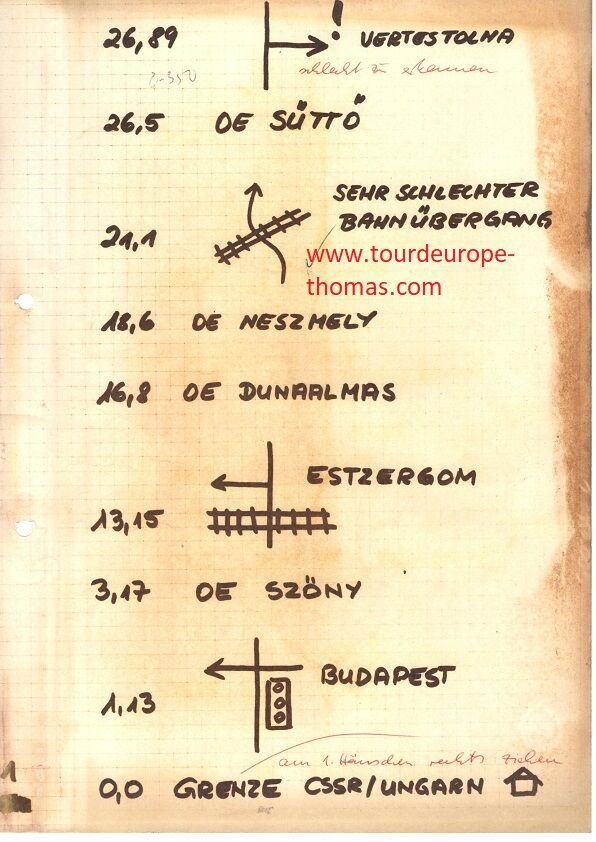 26,89 ! VERTESTOLNA
schlecht zu erkennen
26,5 OE SÜTTÖ
SEHR SCHLECHTER
BAHNÜBERGANG
21,1
www.tourdeurope-
thomas.com
18,6 OE NESZMELY
16,8 OE DUNAALMAS
ESTZERGOM
13,15
3,17 OE SZÖNY
BUDAPEST
1,13
am 1. Häuschen rechts ziehen
1
0,0 GRENZE CSSR/UNGARN